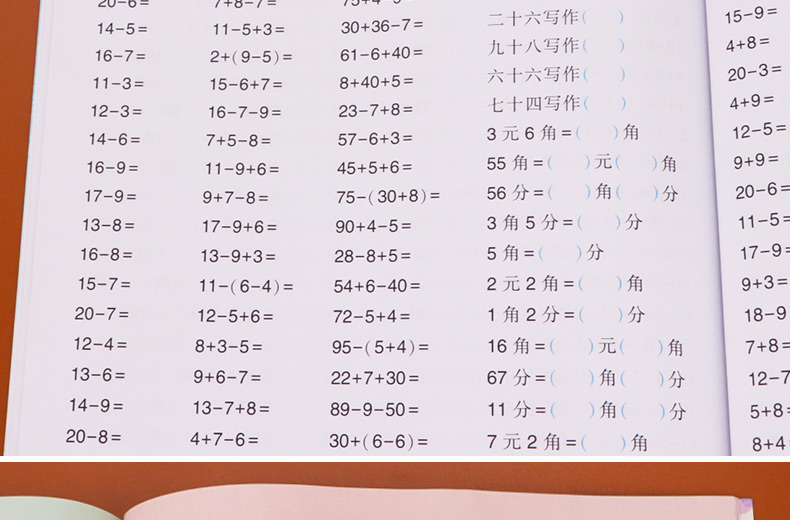 20-6= 7+8-7=
14-5= 11-5+3= 30+36-7= 二十六写作( ) 15-9=
16-7= 2+(9-5)= 61-6+40= 九十八写作( ) 4+8=
11-3= 15-6+7= 8+40+5= 六十六写作( ) 20-3=
12-3= 16-7-9= 23-7+8= 七十四写作( ) 4+9=
14-6= 7+5-8= 57-6+3= 3元6角=( )角 12-5=
16-9= 11-9+6= 45+5+6= 55角=( )元( )角 9+9=
17-9= 9+7-8= 75-(30+8)= 56分=( )角( )分 20-6=
13-8= 17-9+6= 90+4-5= 3角5分=( )分 11-5=
16-8= 13-9+3= 28-8+5= 5角=( )分 17-9=
15-7= 11-(6-4)= 54+6-40= 2元2角=( )角 9+3=
20-7= 12-5+6= 72-5+4= 1角2分=( )分 18-9
12-4= 8+3-5= 95-(5+4)= 16角=( )元( )角 7+8=
13-6= 9+6-7= 22+7+30= 67分=( )角( )分 12-7
14-9= 13-7+8= 89-9-50= 11分=( )角( )分 5+8
20-8= 4+7-6= 30+(6-6)= 7元2角=( )角 8+4